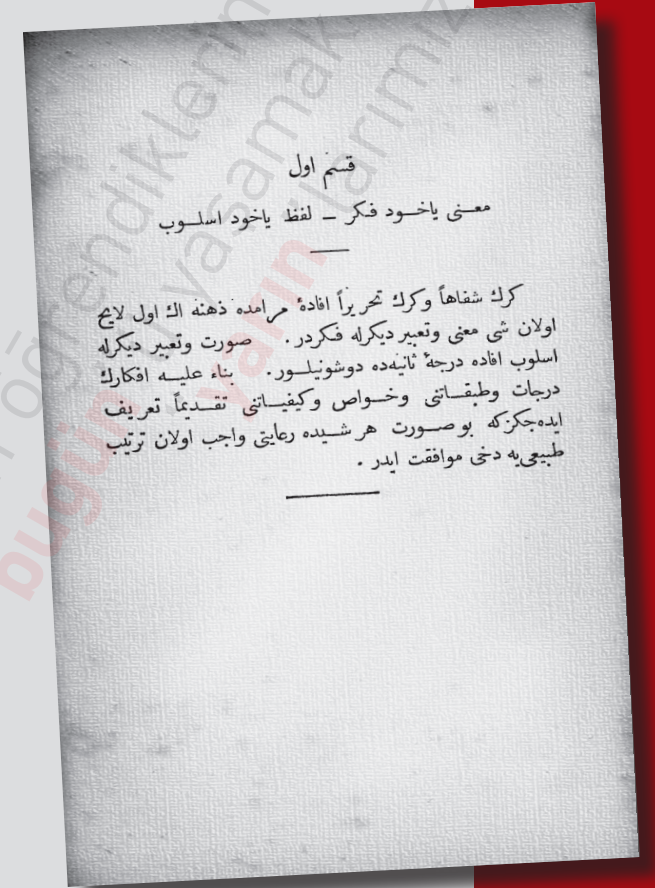 قسم اول
معـنى ياخـود فـكر ــ لفظ ياخود اسلـوب
كرك شفاهاً وكرك تحريراً افادۀ مرامده ذهنه اڭ اول لايح
اولان شى معنى وتعبير ديكرله فكردر . صورت وتعبير ديكرله
اسلوب افاده درجۀ ثانيه‌ده دوشونيلـور . بناء عليـه افكارك
درجات وطبقـاتنى وخـواص وكيفيـاتنى تقـديماً تعريف
ايده‌جكزكه بو صـورت هر شـيده رعايتى واجب اولان ترتيب
طبيعى‌يه دخى موافقت ايدر .
öğrendiklerin
yaşamak
larımız
bugün
yarın